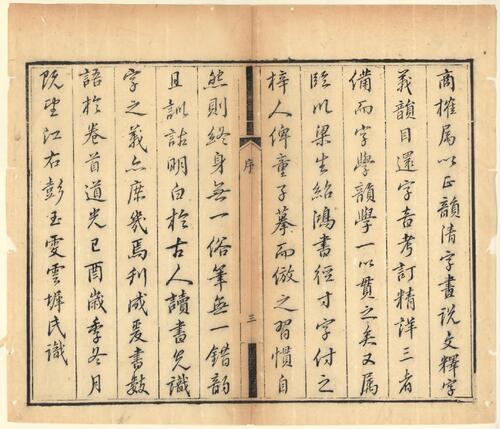 商榷属以正韻清字畫説文釋字
義韻目還字音考訂精詳三者
備而字學韻學一以貫之矣又属
臨川梁生紹鴻書徑寸字付之
梓人俾童子摹而倣之習慣自
序
三
然則終身無一俗筆無一錯韵
且訓詁明白於古人讀書先識
字之義亦庶幾焉刊成爰書數
語於卷首道光己酉歲季冬月
既望江右彭玉雯雲墀氏識